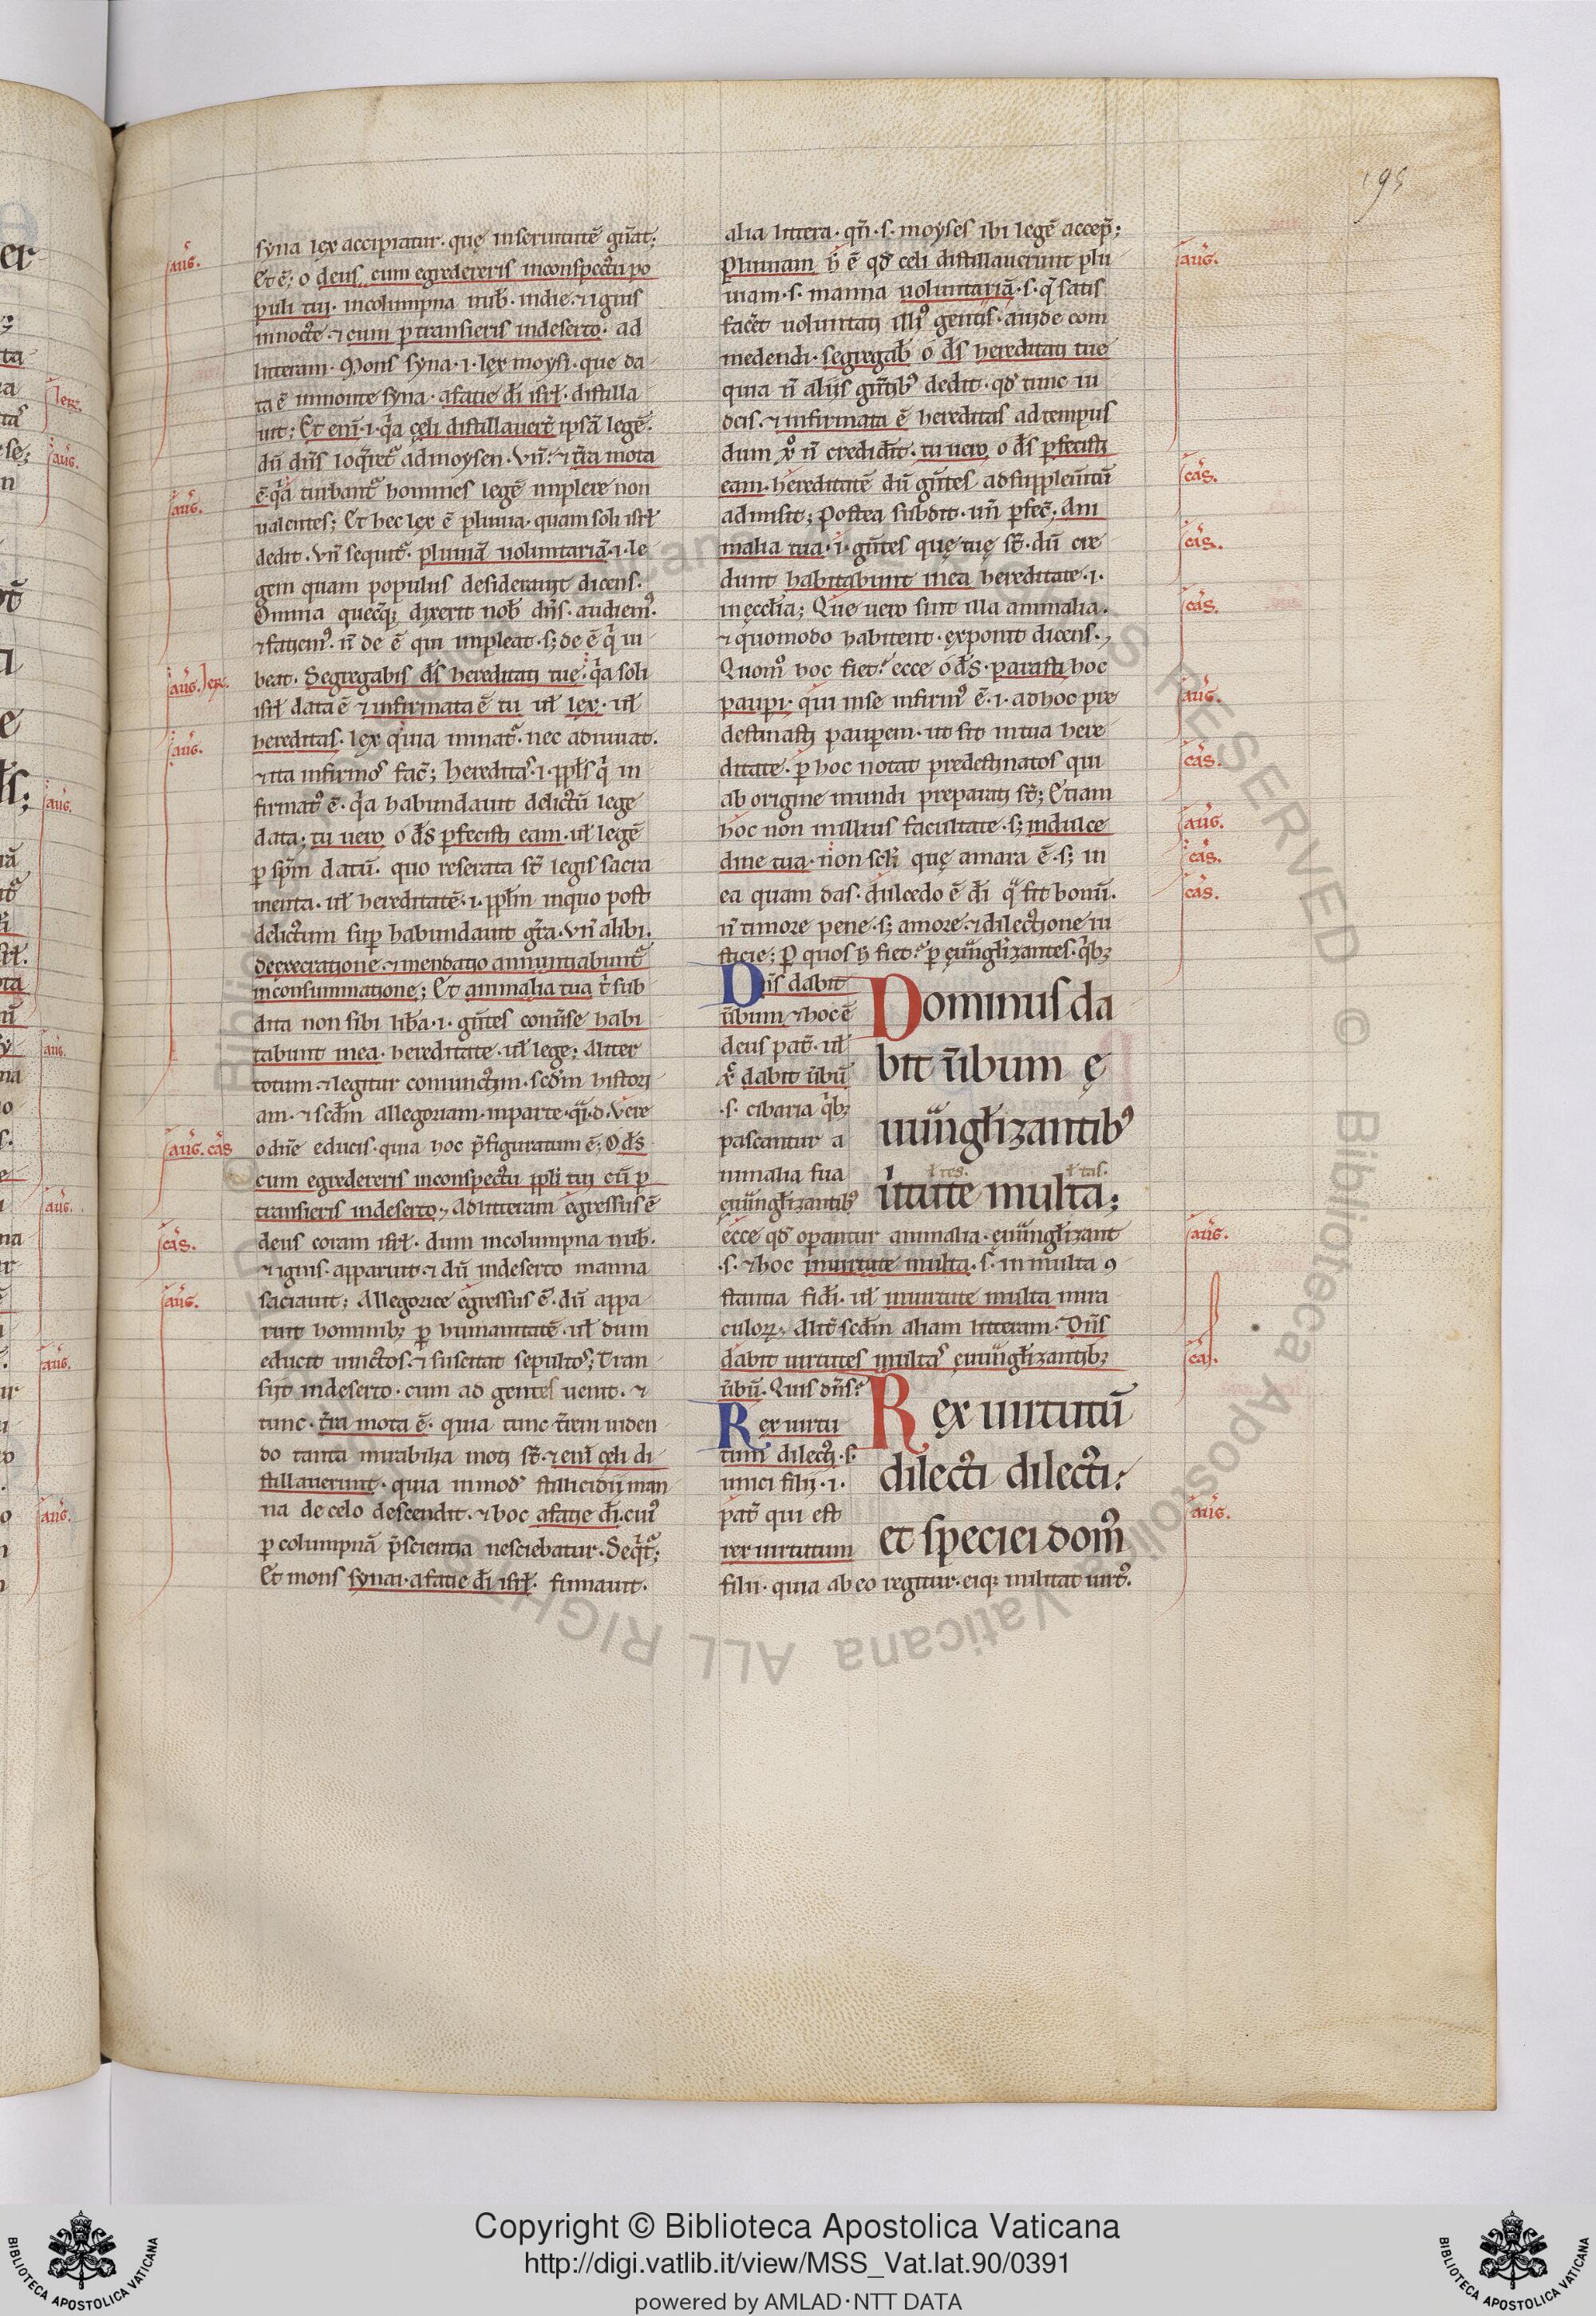 195
syna lex accipiatur. que inseruitutē gn̄at;
Et ē; o deus cum egredereris inconspectu po
puli tui. incolumpna nub̄. indie. ⁊ ignis
innocte. ⁊ cum ꝑtransieris indeserto. ad
litteram. Mons syna .i. lex moysi. que da
ta ē inmonte syna. afatie d̄i isrl̄. distilla
uit; Et enī .i. qͥa celi distillauer̄t ipsā legē.
dū dn̄s loq̄ret᷑ admoysen. vn̄. ⁊ t̄ra mota
ē. qͥa turbant᷑ homines legē implere non
ualentes; Et hec lex ē pluuia. quam soli isrl̄
dedit. vn̄ sequit᷑. pluuiā uoluntariā .i. le
gem quam populus desiderauit dicens.
Omnia quecq̄ dixerit nob̄ dn̄s. audiemꝰ.
⁊ faciemꝰ. n̄ de ē qui impleat. sꝫ de ē qͥ iu
beat. Segregabis d̄s hereditati tue. qͥa soli
isrl̄ data ē ⁊ infirmata ē tu ul̄ lex. ul̄
hereditas. lex quia minat᷑. nec adiuuat.
⁊ ita infirmos fac̄; hereditas .i. ppl̄s qͥ in
firmatꝰ ē. qͥa habundauit delictū lege
data; tu uero o d̄s ꝑfecisti eam. ul̄ legē
ꝑ sp̄m datū. quo reserata st̄ legis sacra
menta. ul̄ hereditatē .i. ppl̄m inquo post
delictum suꝑ habundauit gr̄a. vn̄ alibi.
deexecratione. ⁊ mendatio annuntiabunt᷑
inconsummatione; Et animalia tua t̄ sub
dita non sibi lib̄a .i. gn̄tes conuīse habi
tabunt inea. hereditate. ul̄ lege; Aliter
totum ⁊ legitur coniunctim. scd̄m histori
am. ⁊ scd̄m allegoriam. inparte. qͣi. d. Vere
o dn̄e educis. quia hoc p̄figuratum ē; O d̄s
cum egredereris inconspectu ppl̄i tui cū ꝑ
transieris indeserto. Adlitteram egressus ē
deus coram isrl̄. dum incolumpna nub̄.
⁊ ignis. apparuit. ⁊ dū indeserto manna
saciauit; Allegorice egressus ē. dū appa
ruit hominibꝫ ꝑ humanitatē. ul̄ dum
educit uinctos. ⁊ suscitat sepultos; Tran
sijt indeserto. cum ad gentes uenit. ⁊
tunc. t̄ra mota ē. quia tunc t̄reni uiden
do tanta mirabilia moti st̄. ⁊ enī celi di
stillauerunt. quia inmod̄ stillicidij man
na de celo descendit. ⁊ hoc afatie d̄i. cuiꝰ
ꝑ columpnā p̄scientia nesciebatur. Seqͥt᷑;
Et mons synai. afatie d̄i isrl̄. fumauit.
alia littera. qn̄ .s. moyses ibi legē accep̄;
Pluuiam h̄ ē qd̄ celi distillauerunt plu
uiam .s. manna uoluntariā .s. q̄ satis
facēt uoluntati illiꝰ gentis. auide com
medendi. segregab̄ o d̄s hereditati tue
quia n̄ alijs gn̄tibꝰ dedit. qd̄ tunc iu
deis. ⁊ infirmata ē hereditas adtempus
dum x̄ n̄ credidit. tu uero o d̄s ꝑfecisti
eam. hereditatē dū gn̄tes adsupplem̄tū
admisit; Postea subdit. un̄ ꝑfec̄. Ani
malia tua .i. gn̄tes que tue st̄. dū cre
dunt habitabunt inea hereditate .i.
inecclīa; Que uero sint illa animalia.
⁊ quomodo habitent. exponit dicens.
Quom̄ hoc fiet? ecce o d̄s. parasti hoc
pauꝑi. qui inse infirmꝰ ē .i. adhoc pre
destinasti pauꝑem. ut sit intua here
ditate. ꝑ hoc notat predestinatos qui
ab origine mundi preparati st̄; Etiam
hoc non inillius facultate. sꝫ indulce
dine tua. non scl̄i que amara ē. sꝫ in
ea quam das. dulcedo ē d̄i qͣ fit bonū.
n̄ timore pene. sꝫ amore. ⁊ dilectione iu
sticie; Ꝑ quos h̄ fiet? ꝑ euu̅gl̄izantes. qͥbꝫ
Dn̄s dabit
ūbum ⁊ hoc ē
deus pat̄. ul̄
x̄ dabit ūbū
.s. cibaria qͥbꝫ
pascantur a
nimalia sua
euu̅gl̄izantibꝰ
Dominus da
bit ūbum e
uu̅ngl̄izantibꝰ
ūtute multa;
ecce qd̄ oꝑantur animalia. euu̅gl̄izant
.s. ⁊ hoc inuirtute multa .s. in multa ꝯ
stantia fidi. ul̄ inuirtute multa mira
culoꝝ. Alit̄ scd̄m aliam litteram. Dn̄s
dabit uirtutes multas euu̅gl̄izantibꝫ
ūbū. Quis dn̄s?
Rex uirtu
tum dilecti .s.
unici filij .i.
pat̄ qui est
rex uirtutum
Rex uirtutū
dilecti dilecti;
et speciei dom̄
filii. quia ab eo regitur. eiqꝫ militat uirtꝰ.
aug.
aug.
aug. Ier.
aug.
aug. cas
cas.
aug.
aug.
cas.
cas.
cas.
aug.
cas.
aug.
cas.
cas.
aug.
cas.
aug.
Copyright © Biblioteca Apostolica Vaticana
http://digi.vatlib.it/view/MSS_Vat.lat.90/0391
powered by AMLAD·NTT DATA
BIBLIOTECA APOSTOLICA VATICANA
BIBLIOTECA APOSTOLICA VATICANA